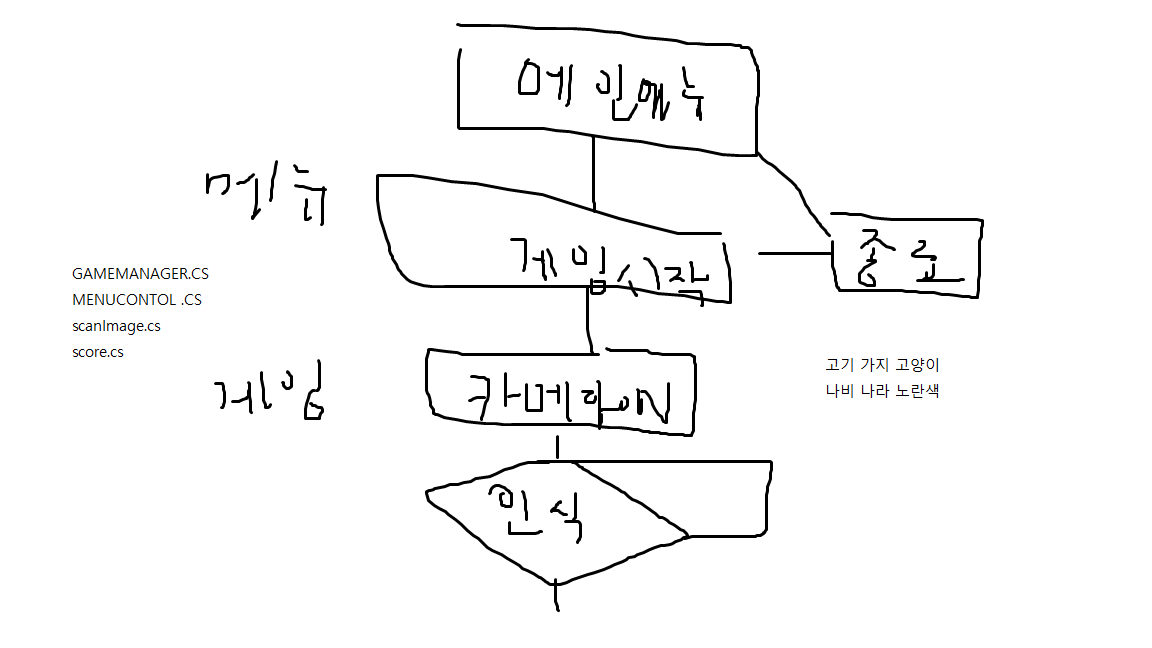 메인메뉴
메뉴
게임시작
종료
GAMEMANAGER.CS
MENUCONTOL .CS
scanImage.cs
score.cs
고기 가지 고양이
나비 나라 노란색
게임
카메라ON
인식